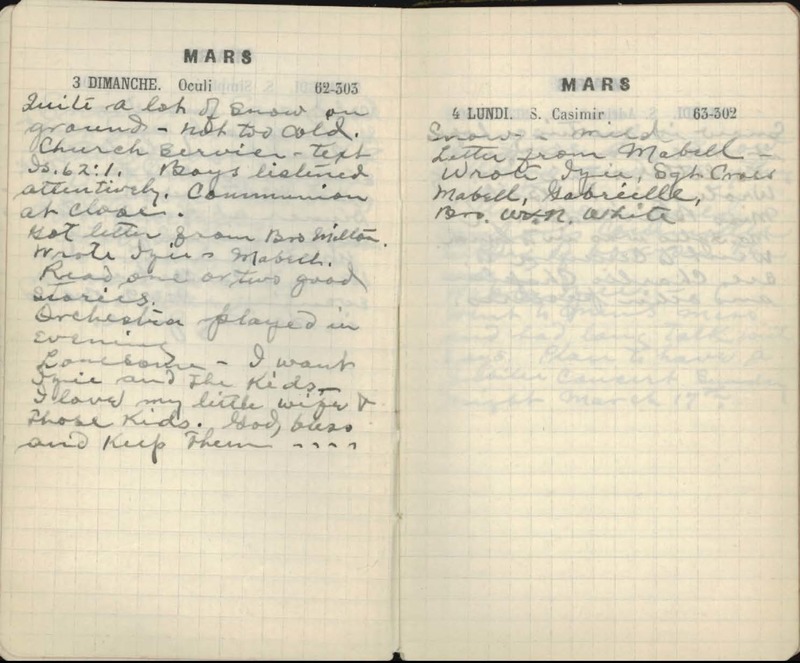 MARS
3 DIMANCHE. Oculi 62-303
Quite a lot of snow on
ground - not too cold.
Church service - text
Is. 62:1. Boys listened
attentively. Communion
at close.
Got letter from Bro Milton.
Wrote Izie & Mabell.
Read one or two good
stories.
Orchestra played in
evening
Lonesome - I want
Izie and the kids -
I love my little wife &
those kids. God, bless
and keep them - - - -
MARS
4 LUNDI. S. Casimir 63-302
Snow - mild
Letter from Mabell -
Wrote Izie, Sgt Cross
Mabell, Gabrielle,
Bro. W. N. White